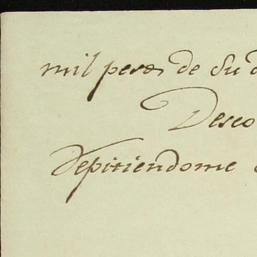 mil pesos de su d
Deseo
repitiendome